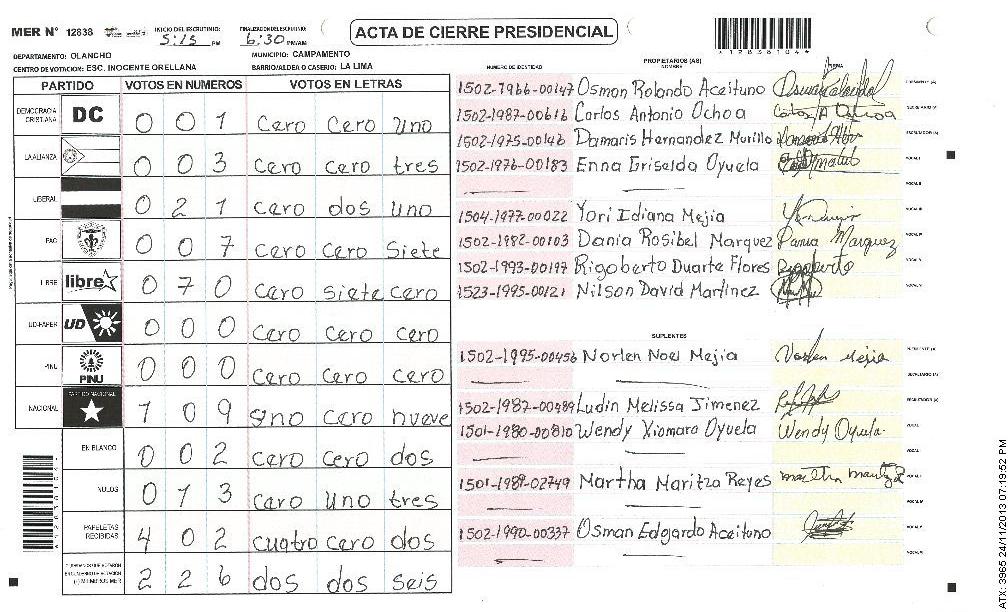 MER N° 12838 INICIO DEL ESCRUTINIO: 5:15 PM FINALIZACION DEL ESCRUTINIO: 6:30 PM/AM
ACTA DE CIERRE PRESIDENCIAL
*12838104*
DEPARTAMENTO: OLANCHO MUNICIPIO: CAMPAMENTO
CENTRO DE VOTACION: ESC. INOCENTE ORELLANA BARRIO/ALDEA O CASERIO: LA LIMA
PARTIDO VOTOS EN NUMEROS VOTOS EN LETRAS
DEMOCRACIA CRISTIANA DC 0 0 1 Cero Cero Uno
LA ALIANZA 0 0 3 Cero cero tres
LIBERAL 0 2 1 Cero dos Uno
PAC 0 0 7 Cero Cero Siete
LIBRE libre 0 7 0 Cero Siete Cero
UD-FAPER UD 0 0 0 Cero Cero Cero
PINU PINU 0 0 0 Cero Cero Cero
NACIONAL PARTIDO NACIONAL 1 0 9 Uno Cero nueve
EN BLANCO 0 0 2 Cero Cero dos
NULOS 0 1 3 Cero Uno tres
PAPELETAS RECIBIDAS 4 0 2 Cuatro Cero dos
2 2 6 dos dos seis
PROPIETARIOS (AS)
NUMERO DE IDENTIDAD NOMBRE FIRMA
1502-1966-00147 Osman Rolando Aceituno PRESIDENTE (A)
1502-1987-00616 Carlos Antonio Ochoa Carlos A Ochoa SECRETARIO (A)
1502-1975-00146 Damaris Hernandez Murillo ESCRUTADOR (A)
1502-1976-00183 Enna Griselda Oyuela VOCAL I
VOCAL II
1504-1977-00022 Yori Idiana Mejia VOCAL III
1502-1982-00103 Dania Rosibel Marquez Dania Marquez VOCAL IV
1502-1993-00197 Rigoberto Duarte Flores Rigoberto VOCAL V
1523-1995-00121 Nilson David Martinez VOCAL VI
SUPLENTES
1502-1995-00456 Norlen Noel Mejia Norlen Mejia PRESIDENTE (A)
SECRETARIO (A)
1502-1987-00489 Ludin Melissa Jimenez ESCRUTADOR (A)
1501-1980-00810 Wendy Xiomara Oyuela Wendy Oyuela VOCAL I
VOCAL II
1501-1989-02749 Martha Maritza Reyes martha maritza VOCAL III
VOCAL IV
1502-1990-00337 Osman Edgardo Aceituno VOCAL V
VOCAL VI
ATX: 3965 24/11/2013 07:19:52 PM